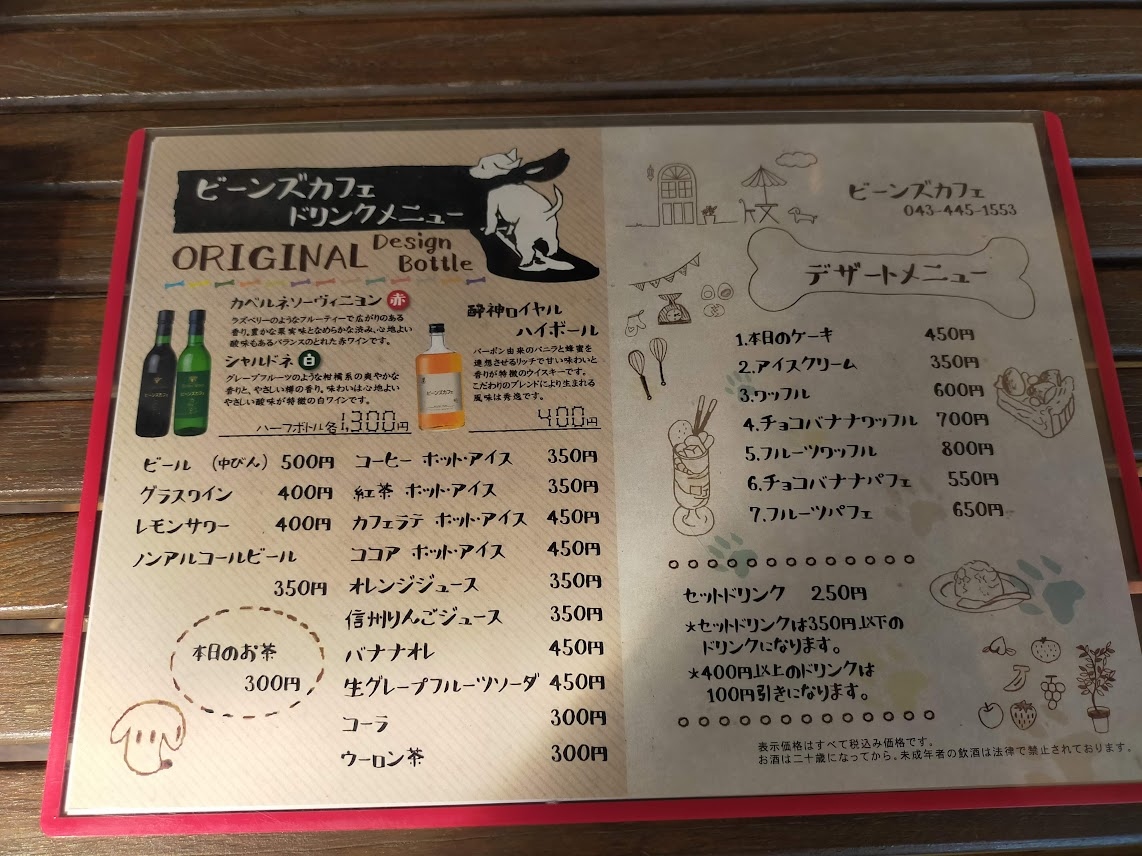 ビーンズカフェ
ドリンクメニュー
ORIGINAL Design
Bottle
カベルネソーヴィニヨン 赤
ラズベリーのようなフルーティーで広がりのある
香り。豊かな果実味となめらかな渋み、心地よい
酸味もあるバランスのとれた赤ワインです。
シャルドネ 白
グレープフルーツのような柑橘系の爽やかな
香りと、やさしい樽の香り。味わいは心地よい
やさしい酸味が特徴の白ワインです。
ハーフボトル各1,300円
酔神ロイヤル
ハイボール
バーボン由来のバニラと蜂蜜を
連想させるリッチで甘い味わいと
香りが特徴のウイスキーです。
こだわりのブレンドにより生まれる
風味は秀逸です。
400円
ビーンズカフェ
ビール (中びん) 500円
グラスワイン 400円
レモンサワー 400円
ノンアルコールビール
350円
本日のお茶
300円
コーヒー ホット・アイス 350円
紅茶 ホット・アイス 350円
カフェラテ ホット・アイス 450円
ココア ホット・アイス 450円
オレンジジュース 350円
信州りんごジュース 350円
バナナオレ 450円
生グレープフルーツソーダ 450円
コーラ 300円
ウーロン茶 300円
ビーンズカフェ
043-445-1553
デザートメニュー
1.本日のケーキ 450円
2.アイスクリーム 350円
3.ワッフル 600円
4.チョコバナナワッフル 700円
5.フルーツワッフル 800円
6.チョコバナナパフェ 550円
7.フルーツパフェ 650円
セットドリンク 250円
*セットドリンクは350円以下の
ドリンクになります。
*400円以上のドリンクは
100円引きになります。
表示価格はすべて税込み価格です。
お酒は二十歳になってから。未成年者の飲酒は法律で禁止されております。